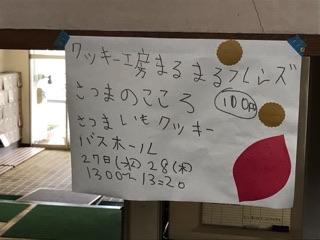 クッキー工房まるまるフレンズ
さつまのこころ
100円
さつまいもクッキー
バスホール
27日(水) 28(木)
1300〜13=20